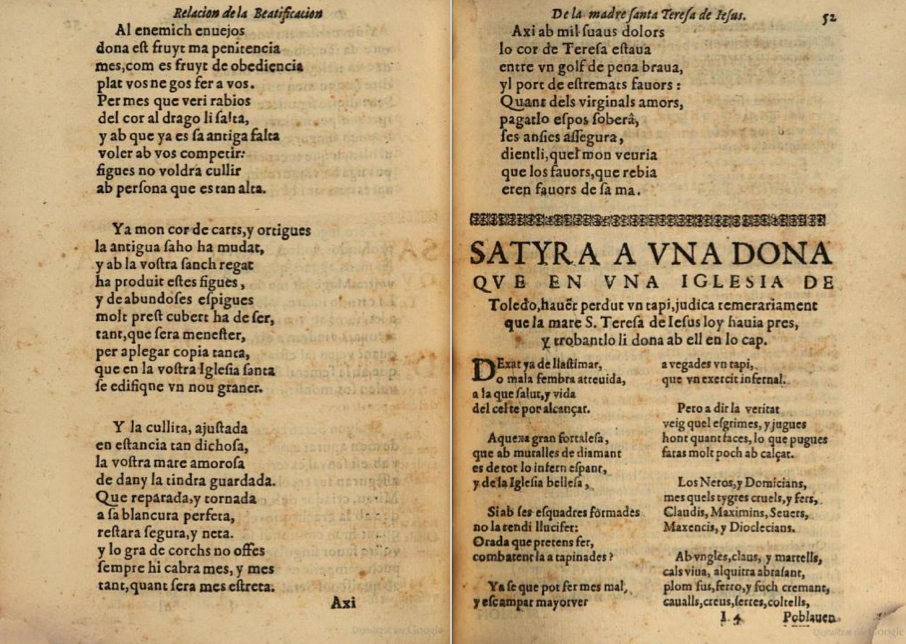 Relacion de la Beatificacion
Al enemich enuejos
dona est fruyt ma penitencia
mes, com es fruyt de obediencia
plat vos ne gos fer a vos.
Per mes que veri rabios
del cor al drago li salta,
y ab que ya es sa antiga falta
voler ab vos competir:
figues no voldra cullir
ab persona que es tan alta.
Ya mon cor de carts, y ortigues
la antigua saho ha mudat,
y ab la vostra sanch regat
ha produit estes figues,
y de abundoses espigues
molt prest cubert ha de ser,
tant, que sera menester,
per aplegar copia tanta,
que en la vostra Iglesia santa
se edifiqne vn nou graner.
Y la cullita, ajustada
en estancia tan dichosa,
la vostra mare amorosa
de dany la tindra guardada.
Que reparada, y tornada
a sa blancura perfeta,
restara segura, y neta.
y lo gra de corchs no offes
sempre hi cabra mes, y mes
tant, quant sera mes estreta.
Axi
De la madre santa Teresa de Iesus.
52
Axi ab mil suaus dolors
lo cor de Teresa estaua
entre vn golf de pena braua,
yl port de estremats fauors:
Quant dels virginals amors,
pagatlo espos soberâ,
ses ansies assegura,
dientli, quel mon veuria
que los fauors, que rebia
eren fauors de sa ma.
SATYRA A VNA DONA
QVE EN VNA IGLESIA DE
Toledo, hauêr perdut vn tapi, judica temerariament
que la mare S. Teresa de Iesus loy hauia pres,
y trobantlo li dona ab ell en lo cap.
DExat ya de llastimar,
o mala fembra atreuida,
a la que salut, y vida
del cel te por alcançar.
Aquexa gran fortalesa,
que ab muralles de diamant
es de tot lo infern espant,
y de la Iglesia bellesa,
Si ab ses esquadres formades
no la rendi llucifer:
Orada que pretens fer,
combatent la a tapinades?
Ya se que pot fer mes mal,
y escampar mayor ver
a vegades vn tapi,
que vn exercit infernal.
Pero a dir la veritat
veig quel esgrimes, y jugues
hont quant faces, lo que pugues
faras molt poch ab calçat.
Los Neros, y Domicians,
mes quels tygres cruels, y fers,
Claudis, Maximins, Seuers,
Maxencis, y Dioclecians.
Ab vngles, claus, y martells,
cals viua, alquitra abrasant,
plom fus, ferro, y foch cremant,
cauals, creus, serres, coltells,
I 4
Poblauen
Digitized by Google
Digitized by Google